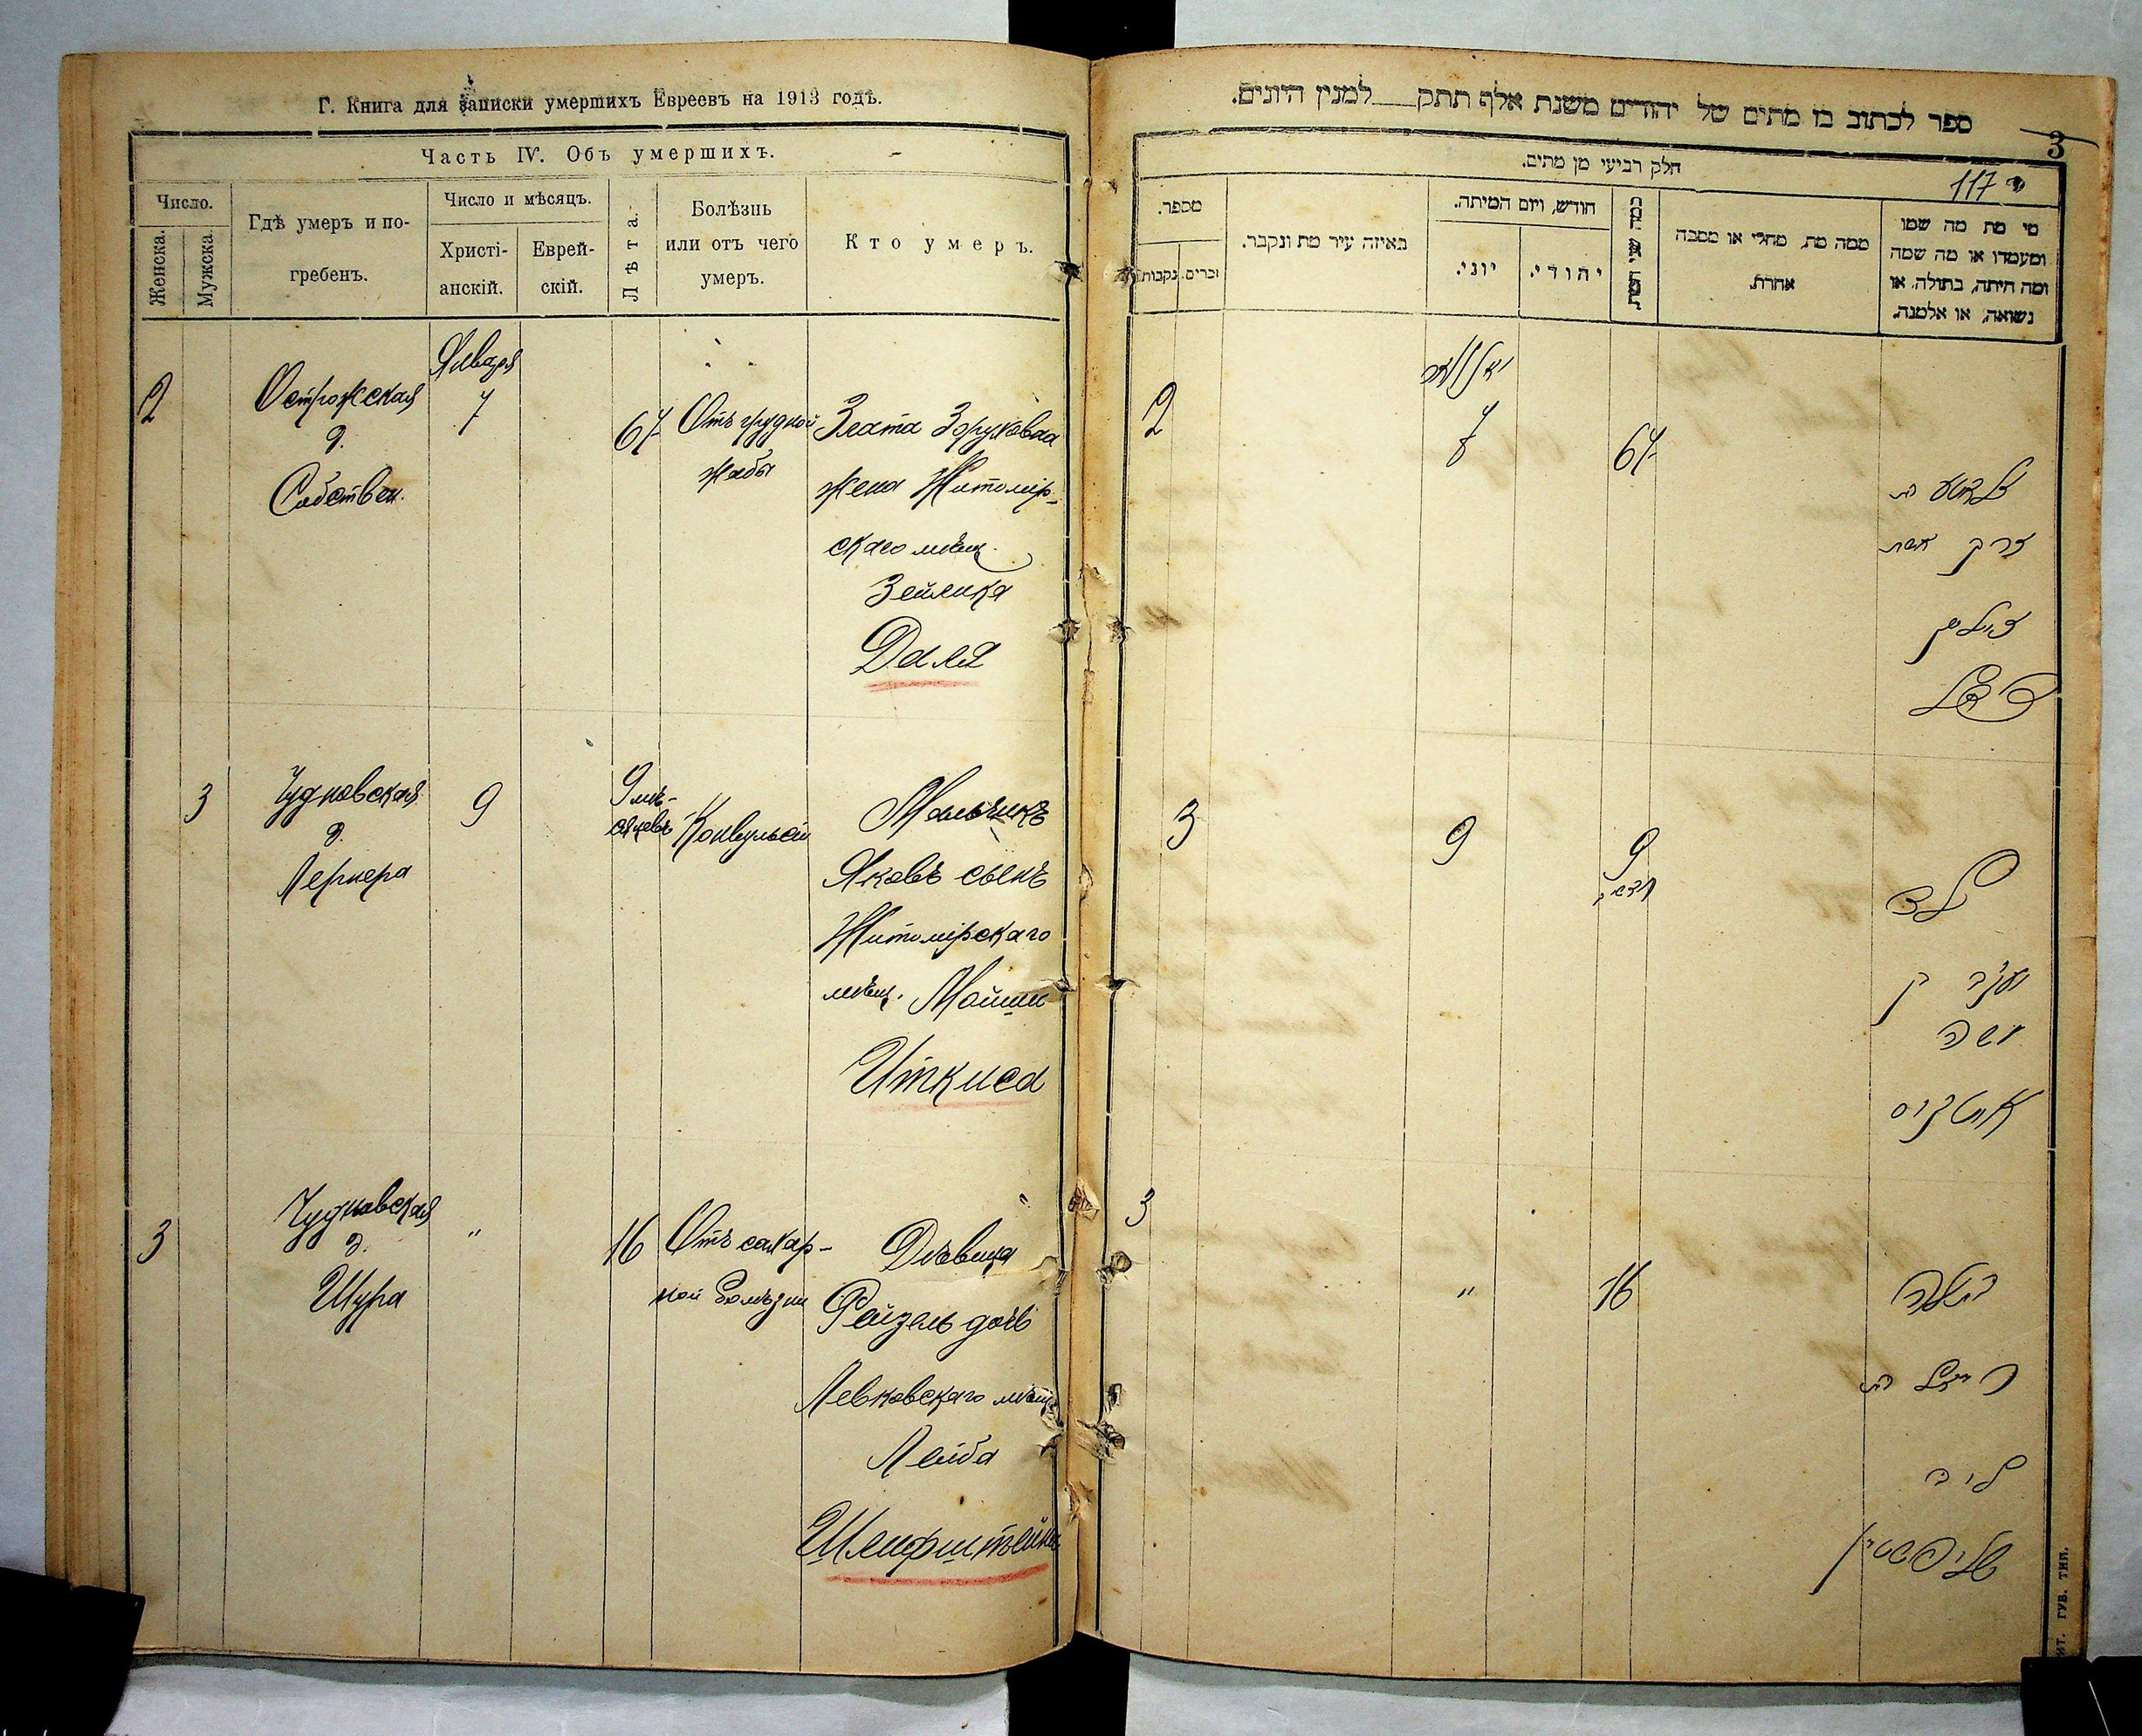 Г. Книга для записки умершихъ Евреевъ на 1913 годъ.
Часть IV. Объ умершихъ.
Число.
Женска.
Мужска.
Гдѣ умеръ и по-
гребенъ.
Число и мѣсяцъ.
Христі-
анскій.
Еврей-
скій.
Лѣта.
Болѣзнь
или отъ чего
умеръ.
Кто умеръ.
2
Острожская
д.
Собствен.
Января
7
67
Отъ грудной
жабы
Злата Зоруховна
жена Житомір-
скаго мѣщ.
Зейлика
Даля
3
Чудновская
д.
Лернера
9
9 мѣ-
сяцевъ
Конвульсіи
Мальчикъ
Яковъ сынъ
Житомірскаго
мѣщ. Мойши
Иткиса
3
Чудновская
д.
Шура
"
16
Отъ сахар-
ной болѣзни
Дѣвица
Рейзель дочь
Левковскаго мѣщ.
Лейба
Шлифштейна
ספר לכתוב בו מתים של יהודים משנת אלף תתק למנין היונים.
3
חלק רביעי מן מתים.
117
מספר.
נקבות.
זכרים.
באיזה עיר מת ונקבר.
חודש, ויום המיתה.
יוני.
יהודי.
כמה שני המת
ממה מת, מחלי או מסבה
אחרת.
מי מת מה שמו
ומעמדו או מה שמה
ומה היתה, בתולה, או
נשואה, או אלמנה.
2
יאנואר
7
67
זלאטע בת
אשת
זיליק
דאל
3
9
9
ילד
יעקב בן
משה
איטקיס
3
"
16
בתולה
רייזל בת
ליב
שליפשטיין
ИТ. ГУБ. ТИП.